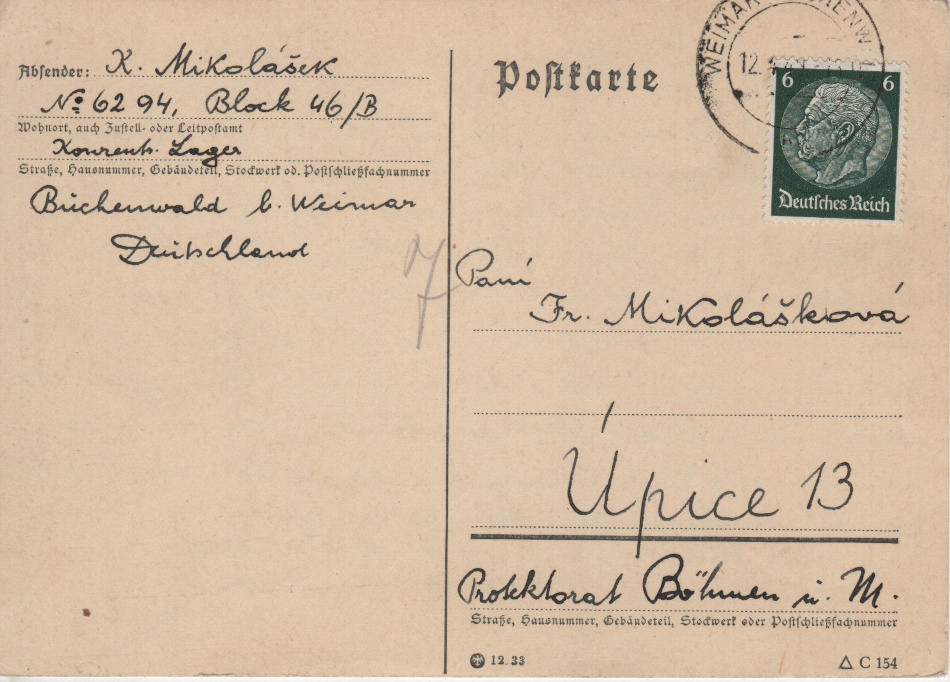 Absender: K. Mikolášek
No 6294, Block 46/B
Wohnort, auch Zustell- oder Leitpostamt
Konzent. Lager
Straße, Hausnummer, Gebäudeteil, Stockwerk od. Postschließfachnummer
Buchenwald b. Weimar
Deutschland
7
Postkarte
WEIMAR
12.
6 6
Deutsches Reich
Paní
Fr. Mikolášková
Úpice 13
Protektorat Böhmen u. M.
Straße, Hausnummer, Gebäudeteil, Stockwerk oder Postschließfachnummer
12. 33
C 154